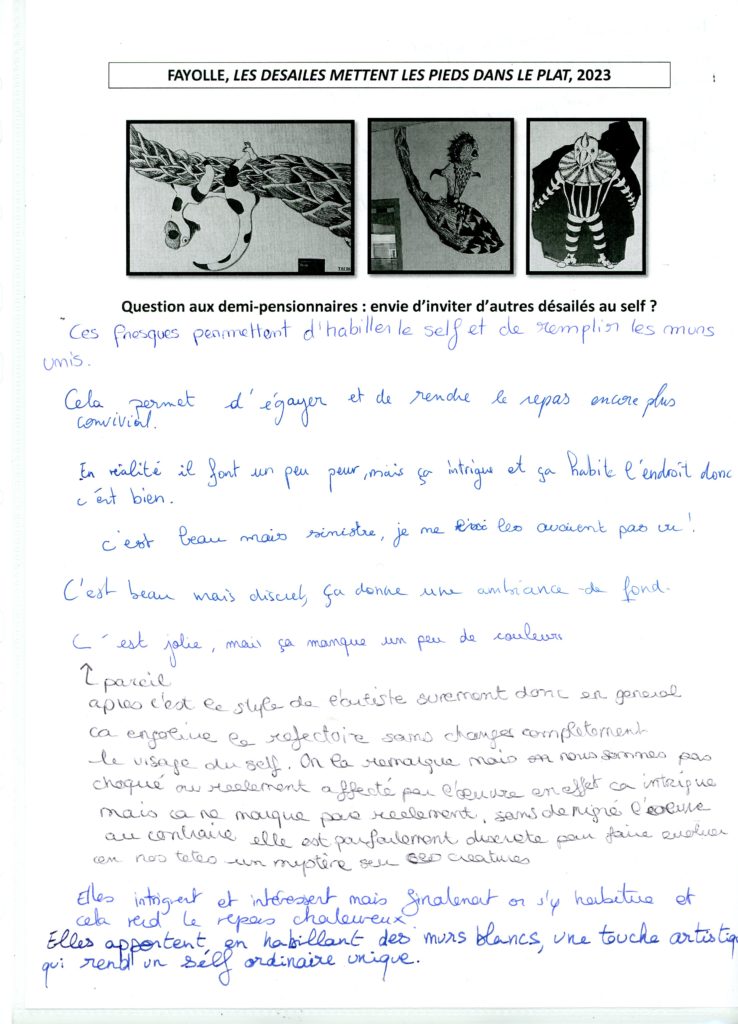 FAYOLLE, LES DESAILES METTENT LES PIEDS DANS LE PLAT, 2023
Question aux demi-pensionnaires : envie d'inviter d'autres désailés au self ?
Ces fresques permettent d'habiller le self et de remplir les murs
unis.
Cela permet d'égayer et de rendre le repas encore plus
convivial.
En réalité il font un peu peur, mais ça intrigue et ça habite l'endroit donc
c'est bien.
c'est beau mais sinistre, je ne les avaient pas vu !
C'est beau mais discret, ça donne une ambiance de fond.
C'est jolie, mais ça manque un peu de couleurs
↑ pareil
apres c'est le style de l'artiste surement donc en general
ca enjolive le refectoire sans changer completement
le visage du self. On la remarque mais on nous sommes pas
choqué ou reelement affecté par l'œuvre en effet ca intrigue
mais ca ne marque pas reelement, sans denigré l'œuvre
au contraire elle est parfaitement discrete pour faire evoluer
en nos tetes un mystère sur ces creatures
Elles intriguent et intéressent mais finalement on s'y habitue et
cela rend le repas chaleureux
Elles apportent, en habillant des murs blancs, une touche artistiq
qui rend un sélf ordinaire unique.